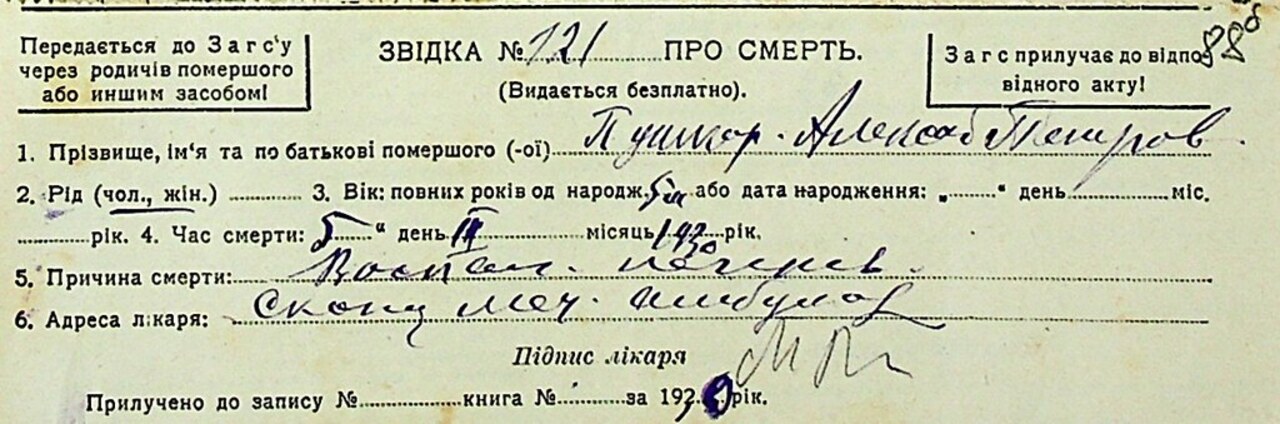 Передається до Загс'у
через родичів помершого
або иншим засобом!
ЗВІДКА № 121 ПРО СМЕРТЬ.
(Видається безплатно).
Загс прилучає до відпо
відного акту!
88
1. Прізвище, ім'я та по батькові помершого (-ої) Пушкар. Александ Петров
2. Рід (чол., жін.) 3. Вік: повних років од народж. 5 м або дата народження: „ " день міс.
рік. 4. Час смерти: 5 " день III місяць 1930 рік.
5. Причина смерти: Воспал.
6. Адреса лікаря:
Підпис лікаря
Прилучено до запису № книга № за 1930 рік.